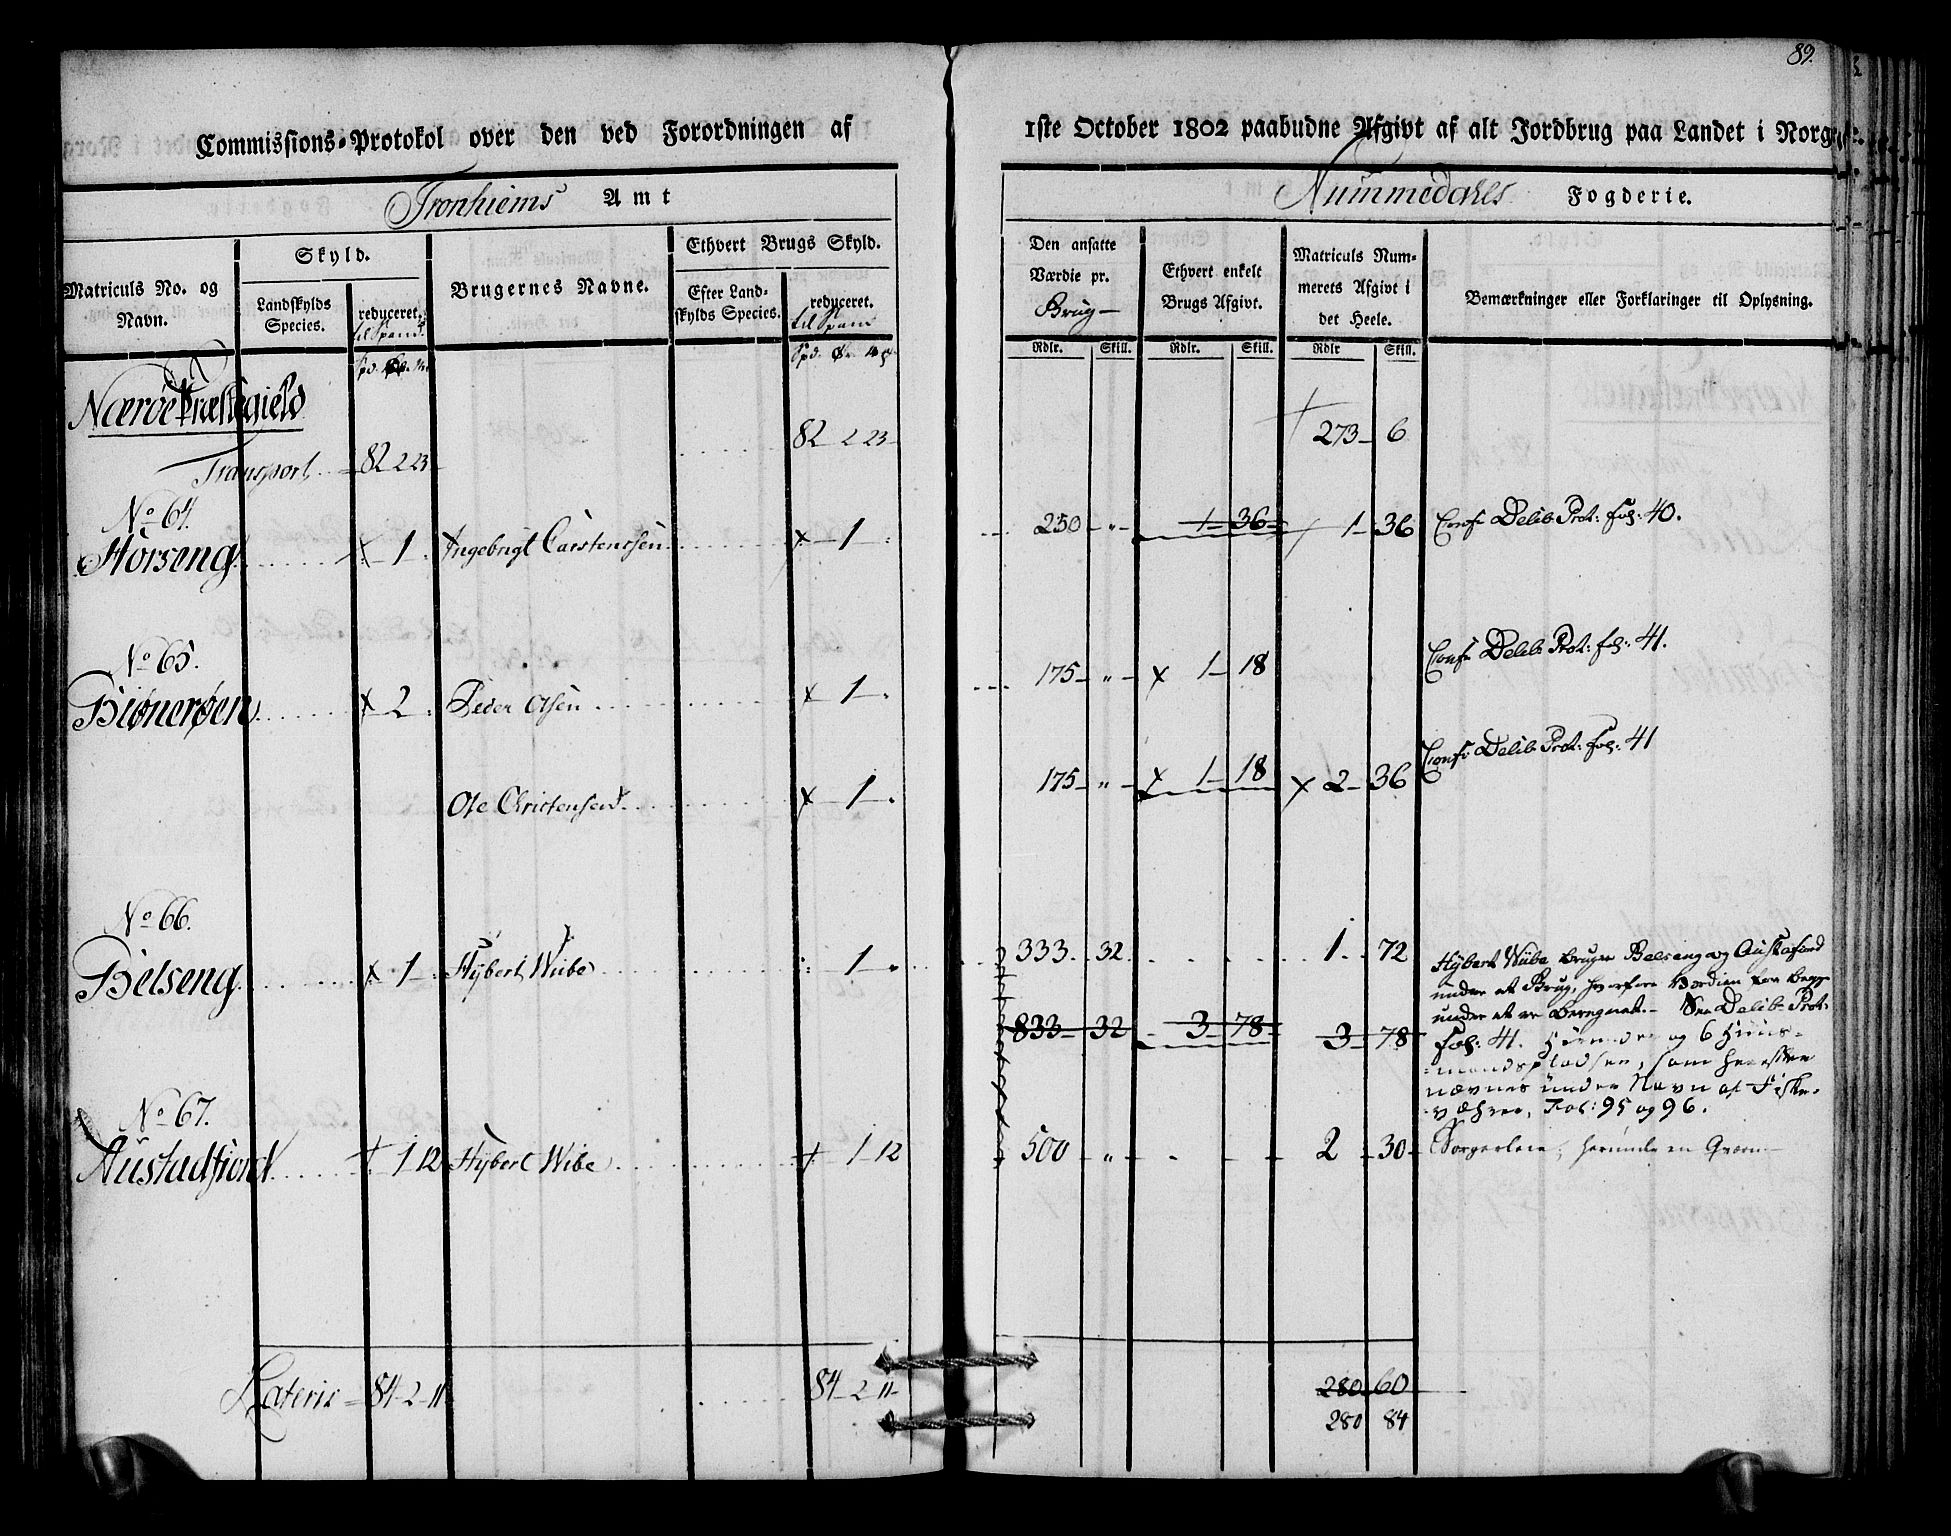 89.
Commissions-Protokol over den ved Forordningen af 1ste October 1802 paabudne Afgivt af alt Jordbrug paa Landet i Norge
Tronhiems Amt
Nummedahls Fogderie.
Matriculs No. og Navn.
Skyld.
Landskylds Species.
reduceret.
til Spand
Brugernes Navne.
Ethvert Brugs Skyld.
Efter Landskylds Species.
reduceret.
til Spand
Den ansatte Værdie pr.
Brug
Ethvert enkelt Brugs Afgivt.
Matriculs Nummerets Afgivt i det Heele.
Bemærkninger eller Forklaringer til Oplysning.
Rdlr. Skill. Rdlr. Skill. Rdlr Skill.
Nærøe Præstegield
Transport 82 2 23 82 2 23 273 6
No 64.
Horseng 1 Ingebrigt Carstenssen 1 250 " 1 36 1 36 Conf: Delib: Prot: fol: 40.
No 65.
Biønerøen 2 Peder Olsen 1 175 " 1 18 Conf: Delib: Prot: fol: 41.
Ole Christensen 1 175 " 1 18 2 36 Conf: Delib: Prot: fol: 41
No 66.
Belseng 1 Hÿbert Wiibe 1 333 32 1 72
833 32 3 78 3 78
Hÿbert Wiibe bruger Belseng og Austafiord
under et Brug, hvorfore Værdien for begge
under et er beregnet. - See Delib: Prot:
fol: 41. og 6 Huus-
mandspladser, som
nævnes under Navn af Fiske-
væhrer, Fol: 95 og 96.
No 67.
Austadfiord 1 12 Hÿbert Wibe 1 12 500 " 2 30 herunder en Qværn
Lateris 84 2 11 84 2 11 280 60
280 84